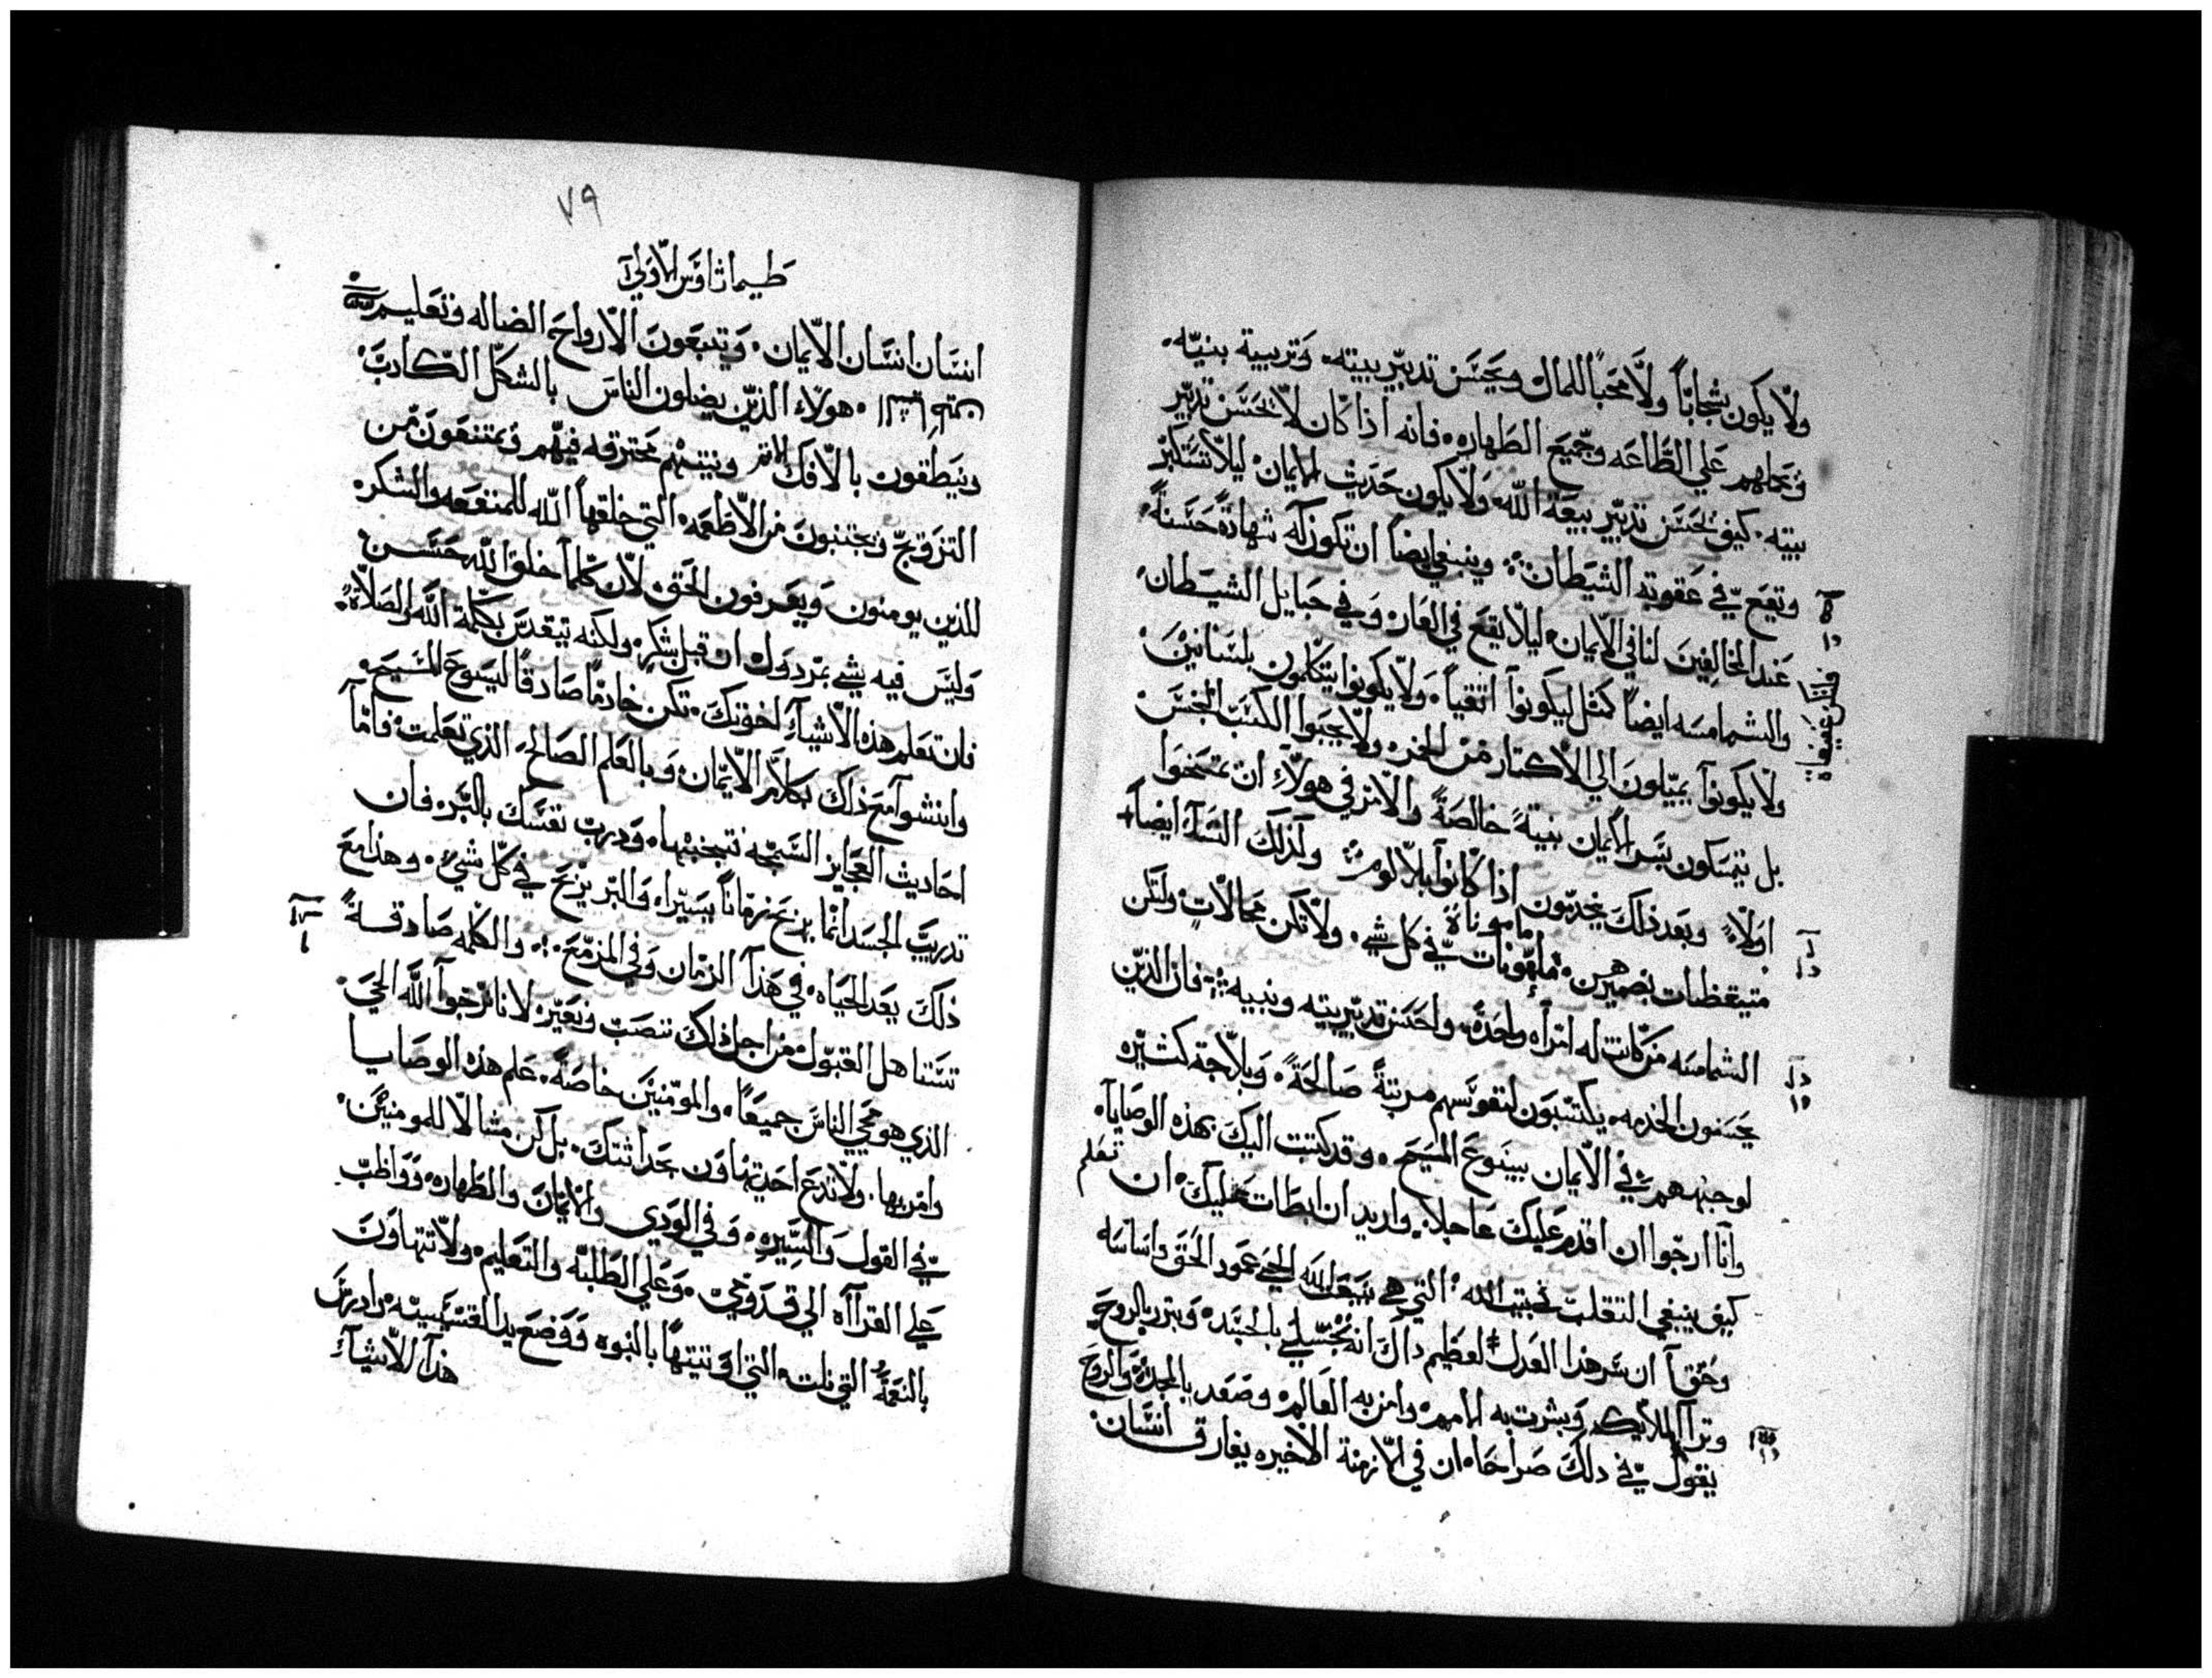 ولا يكون شجاباً ولا محباً للمال ويحسن تدبير بيته، وتربية بنيه.
وتحملهم علي الطاعه وجميع الطهاره. فانه اذا كان لا يحسن تدبير
بيته. كيف يحسن تدبير بيعة الله. ولا يكون حديث الايمان. ليلا تستكبر
وتقع في عقوبة الشيطان. وينبغي ايضاً ان تكون له شهادةً حسنةً.
عند المخالفين لنا في الايمان. ليلا يقع في العار. وفي حبايل الشيطان.
والشمامسه ايضاً كمثل ليكونوا اتقياً. ولا يكونوا يتكلمون بلسانين
ولا يكونوا يميلون الي الاكثار من الخمر. ولا يحبوا الكسب النجس
بل يتمسكون بسر الايمان بنيةً خالصةً والامر في هولاء ان يمتحنوا
اولاً. وبعد ذلك يخدمون اذا كانوا بلا لوم. وكذلك النسآ ايضاً
متيقظات بضميرهن. مامونات في كل شي. ولا تكن محالات ولتكن
مامونات
الشمامسه من كانت له امراه واحدة. واحسن تدبير بيته وبنيه. فان الذين
يحسنون الخدمه. يكتسبون لنفوسهم مرتبةً صالحةً. وبلاجة كثيره
لوجنههم في الايمان بيسوع المسيح. وقد كتبت اليك بهذه الوصايا.
وانا ارجوا ان اقدم عليك عاجلا. واريد ان ابطات عليك. ان تعلم
كيف ينبغي التقلب في بيت الله. التي هي بيعة الله الحي عمود الحق واساسه
وحقاً ان سر هذا العدل لعظيم. ذاك انه تجسلي بالجسد. وتبرر بالروح
وترآ الملايكه وبشرت به الامم. وامن به العالم. وصعد بالمجد. والروح
يقول في ذلك صراحا. ان في الازمنة الاخيره يفارق انسان
٧٩
طيماثاوس الاولي
انسان انسان الايمان. ويتبعون الارواح الضاله وتعليم
هولاء الذين يضلون الناس بالشكل الكادب.
وينطقون بالافك ونيتهم محترقه فيهم ويمتنعون من
التزويج ويجتنبون من الاطعمه. التي خلقها الله للمنفعه والشكر.
للذين يومنون ويعرفون الحق. لان كلما خلق الله حسن
وليس فيه شي بمردول ان قبل بشكر. ولكنه يتقدس بكلمة الله والصلاة.
فان تعلم هذه الاشيآء لخوتك. تكن خادماً صادقاً ليسوع المسيح.
وانتشوا مع ذلك بكلام الايمان. وبالعلم الصالح. الذي تعلمت. فاما
احاديث العجايز السمجه فتجنبها. ودرب نفسك بالبر. فان
تدريب الجسد انما يربح زماناً يسيرا. والبر يربح في كل شي. وهذا مع
ذلك يعد الحياه. في هذا الزمان وفي المزمع. والكلمه صادقه
تستاهل القبول. من اجل ذلك ننصب ونعير. لانا نرجوا الله الحي.
الذي هو محيي الناس جميعاً. والمومنين خاصةً. علم هذه الوصايا
وامر بها. ولا تدع احد يتهاون بحداثتك. بل كن مثالا للمومنين.
في القول والسيره. وفي الودي والايمان والطهاره. وواظب
علي القرآه الي قدومي. وعلي الطلبه والتعليم. ولا تتهاون
بالنعمة التي نلت. التي اوتيتها بالنبوه ووضع يد القسيسيه. وادرس
هذا الاشيآء